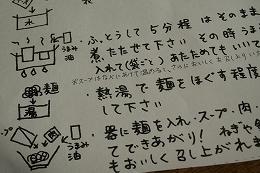 ・ふっとうして5分程 はそのまま
煮たたせて下さい その時うま
入れて(袋ごと)あたためてもいいで
うまみ
油
麺
湯
・熱湯で麺をほぐす程度
して下さい
・器に麺を入れ・スープ・肉・
てできあがり! ねぎや
もおいしく召し上がれま
うまみ
油